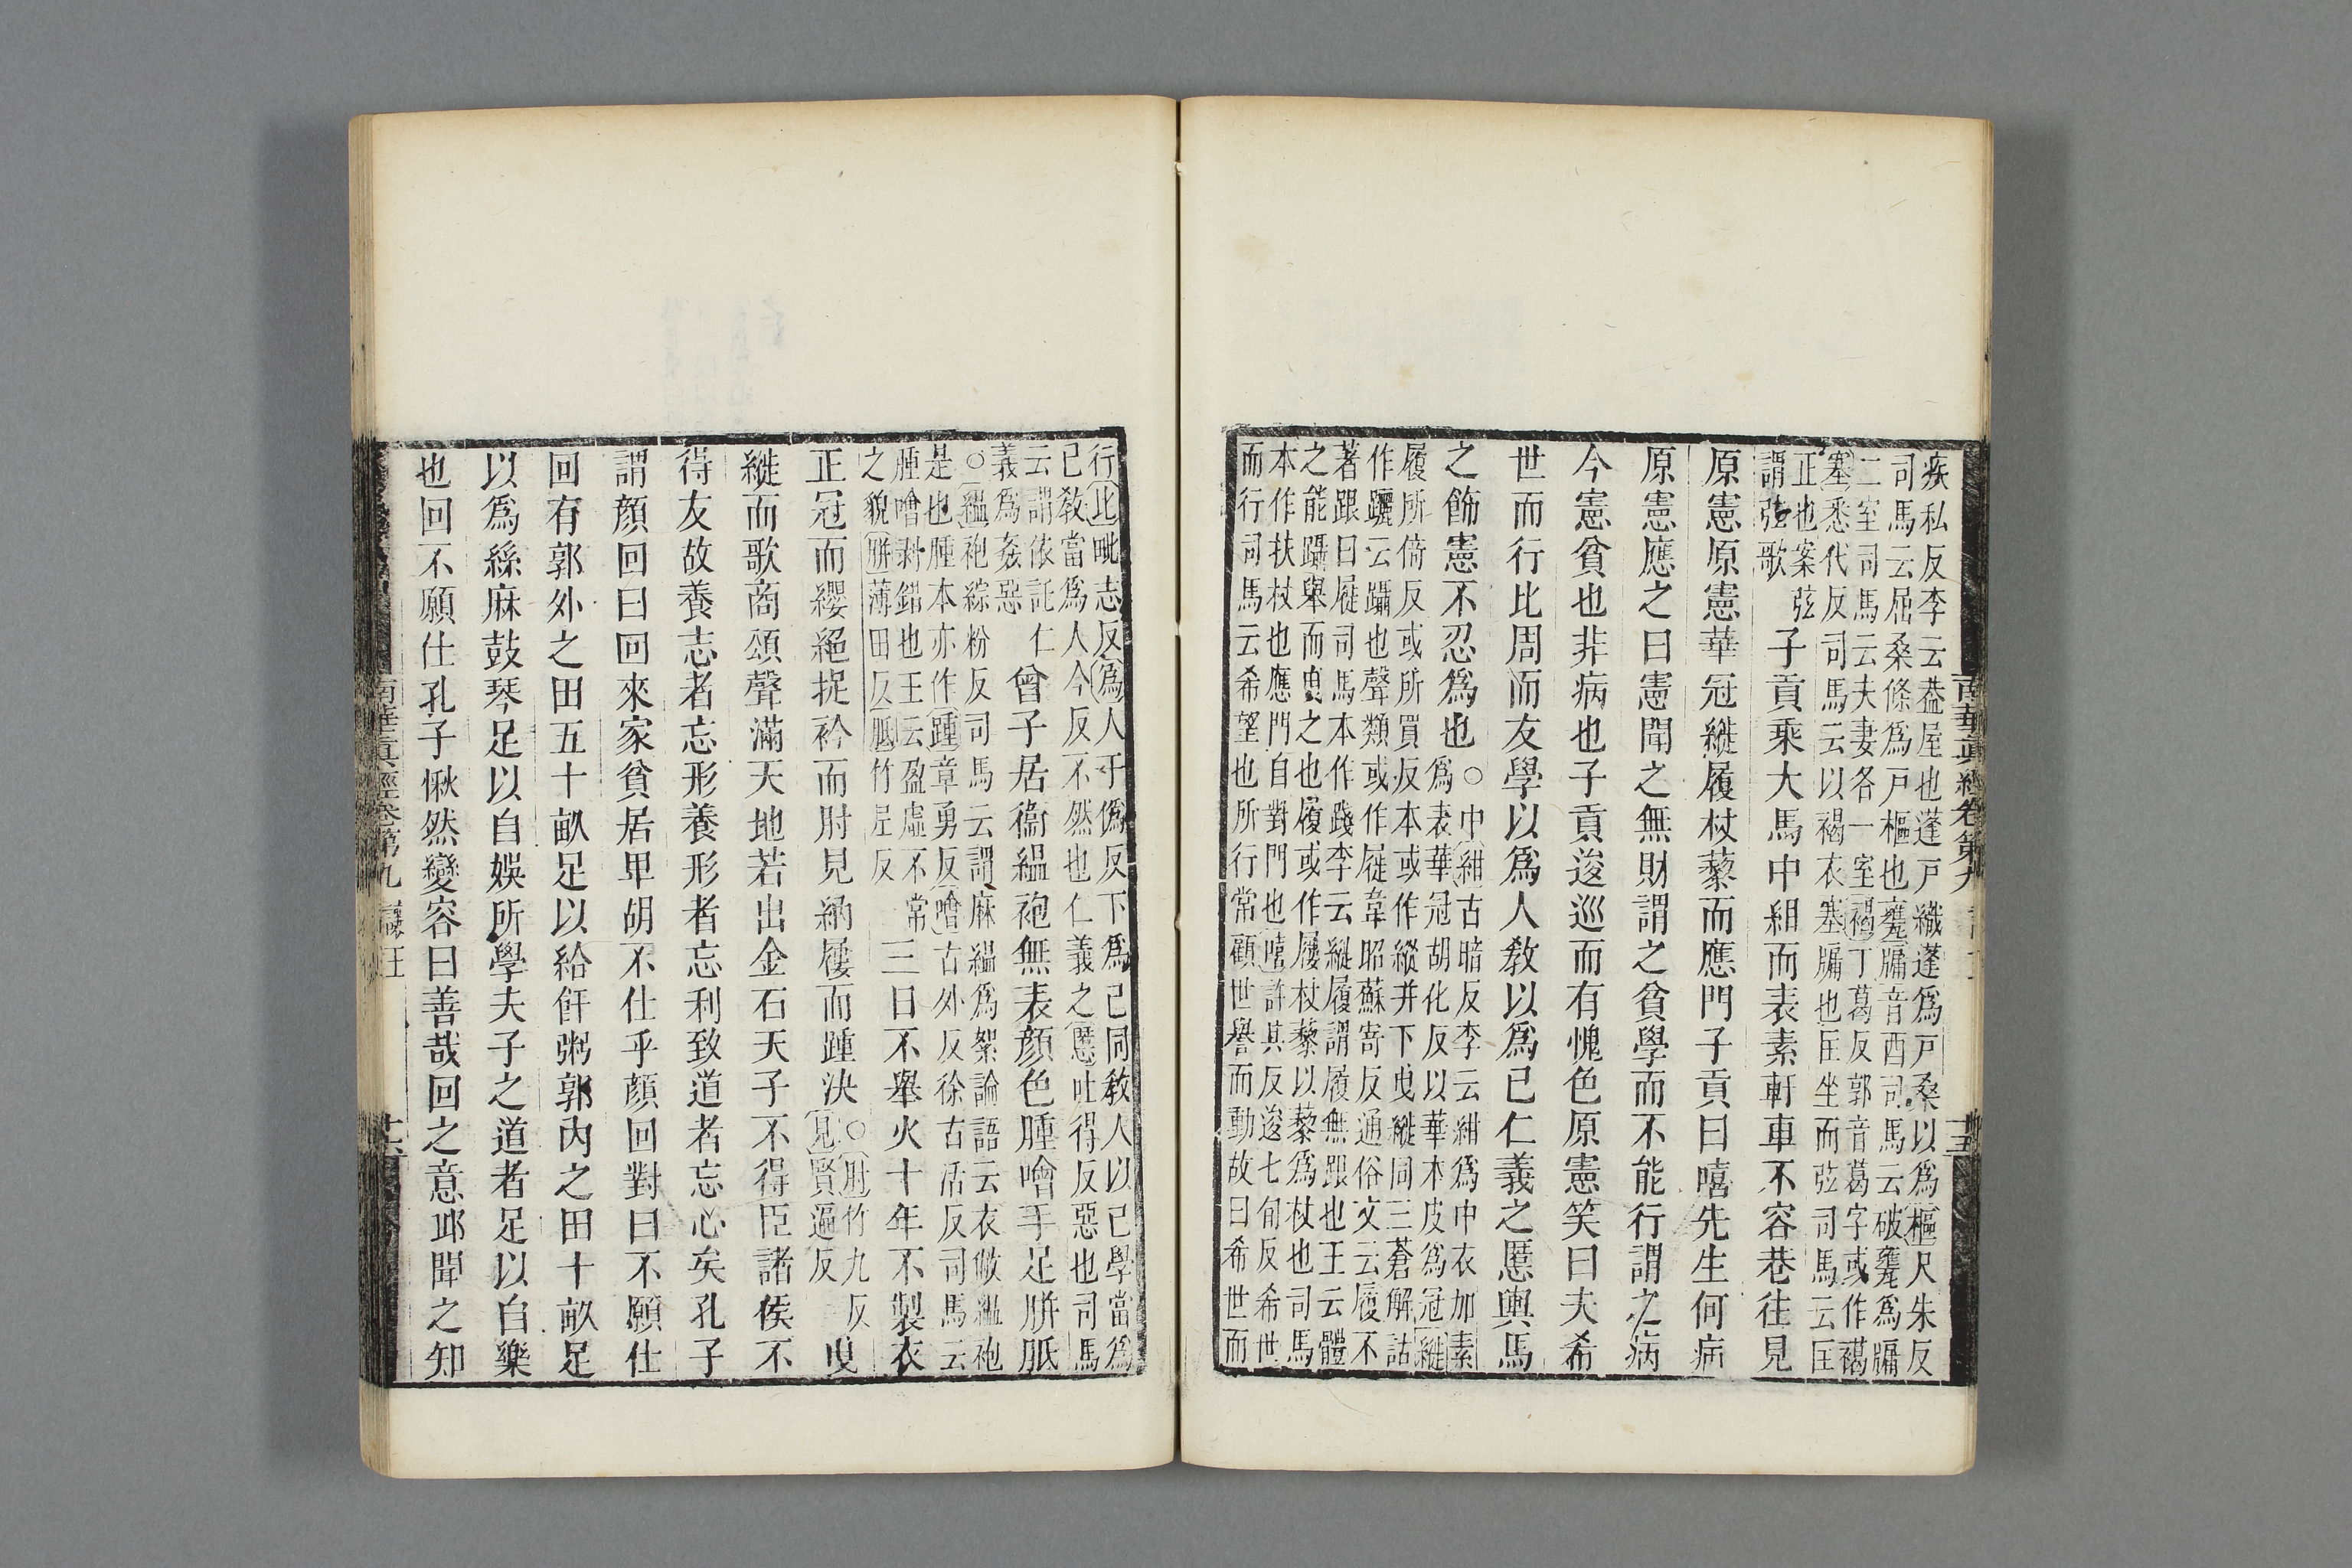 疾私反李云葢屋也蓬戸織蓬爲戸桑以爲樞尺朱反
司馬云屈桑條爲戸樞也甕牖音酉司馬云破甕爲牖
二室司馬云夫妻各一室褐丁葛反郭音葛字或作褐
塞悉代反司馬云以褐衣塞牖也匡坐而弦司馬云匡
正也案弦
謂弦歌
子貢乘大馬中紺而表素軒車不容巷往見
原憲原憲華冠縰履杖藜而應門子貢曰嘻先生何病
原憲應之曰憲聞之無財謂之貧學而不能行謂之病
今憲貧也非病也子貢逡巡而有愧色原憲笑曰夫希
世而行比周而友學以爲人敎以爲已仁義之慝輿馬
之飾憲不忍爲也○中紺古暗反李云紺爲中衣加素
爲表華冠胡化反以華木皮爲冠縰
履所倚反或所買反本或作縱并下曳縰同三蒼解詁
作躧云躡也聲類或作屣韋昭蘇寄反通俗文云履不
著跟曰屣司馬本作踐李云縰履謂履無跟也王云體
之能躡舉而曳之也履或作屢杖藜以藜爲杖也司馬
本作扶杖也應門自對門也嘻許其反逡七旬反希世
而行司馬云希望也所行常顧世譽而動故曰希世而
南華眞經卷第九
十五
行比毗志反爲人于僞反下爲己同敎人以己學當爲
已敎當爲人今反不然也仁義之慝吐得反惡也司馬
云謂依託仁
義爲姦惡
曾子居衞縕袍無表顔色腫噲手足胼胝
○縕袍綜粉反司馬云謂麻縕爲絮論語云衣敝縕袍
是也腫本亦作踵章勇反噲古外反徐古活反司馬云
腫噲剥錯也王云盈虛不常
之貌胼薄田反胝竹尼反
三日不舉火十年不製衣
正冠而纓絕捉衿而肘見納屨而踵決○肘竹九反
見賢遍反
曳
縰而歌商頌聲滿天地若出金石天子不得臣諸侯不
得友故養志者忘形養形者忘利致道者忘心矣孔子
謂顔回曰回來家貧居卑胡不仕乎顔回對曰不願仕
回有郭外之田五十畝足以給飦粥郭内之田十畝足
以爲絲麻鼓琴足以自娛所學夫子之道者足以自樂
也回不願仕孔子愀然變容曰善哉回之意邱聞之知
南華眞經卷第九 讓王
十六